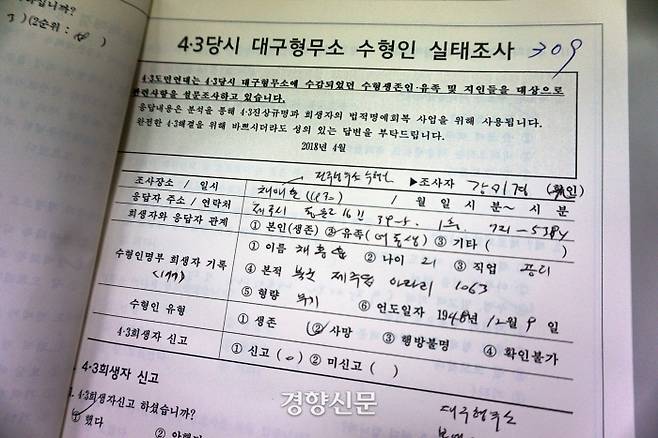 니까?
)(2순위 :
4·3당시 대구형무소 수형인 실태조사
309
4·3도민연대는 4·3당시 대구형무소에 수감되었던 수형생존인·유족 및 지인들을 대상으로
관련사항을 설문조사하고 있습니다.
응답내용은 분석을 통해 4·3진상규명과 희생자의 법적명예회복 사업을 위해 사용됩니다.
완전한 4·3해결을 위해 바쁘시더라도 성의 있는 답변을 부탁드립니다.
2018년 4월
조사장소 / 일시 / 월 일 시 분～ 시 분 ▶조사자 강미경
응답자 주소 / 연락처 제주시 16길 721-5384
희생자와 응답자 관계 ① 본인(생존) ② 유족(여동생) ③ 기타 ( )
수형인명부 희생자 기록 ① 이름 ② 나이 21 ③ 직업
④ 본적 제주읍 아라리 1063
⑤ 형량 무기 ⑥ 언도일자 1948년 12월 9일
수형인 유형 ① 생존 ② 사망 ③ 행방불명 ④ 확인불가
4·3희생자 신고 ① 신고 ( o ) ② 미신고 ( )
4·3희생자 신고
4·3희생자신고 하셨습니까?
① 했다
경향신문
대구형무소